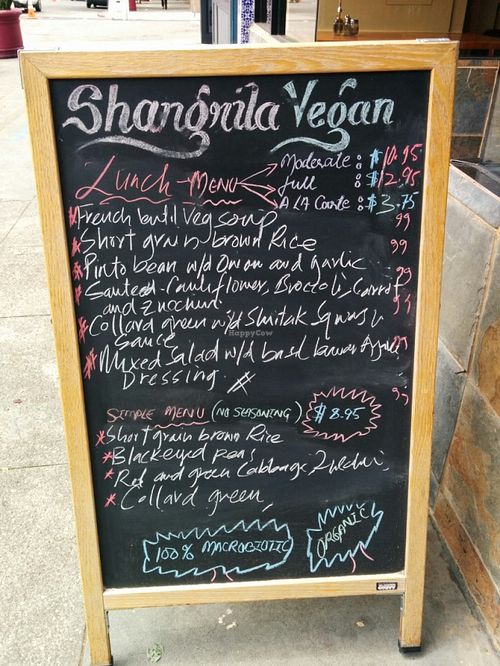 Shangrila Vegan
Lunch - MENU
Moderate : $10.95
full : $12.95
A LA Carte : $3.75
French lentil Veg soup
Short grain brown Rice
Pinto bean w/d Onion and garlic
Sauteed Cauliflower, Broccoli, Carrot
and Zucchini
Collard green w/d Shiitak Squash
Sauce
Mixed Salad w/d basil
Dressing.
SIMPLE MENU (NO SEASONING) $8.95
Short grain brown Rice
Blackeyed peas
Red and green Cabbage, Zucchini,
Collard green,
100% MACROBIOTIC
ORGANIC
HappyCow